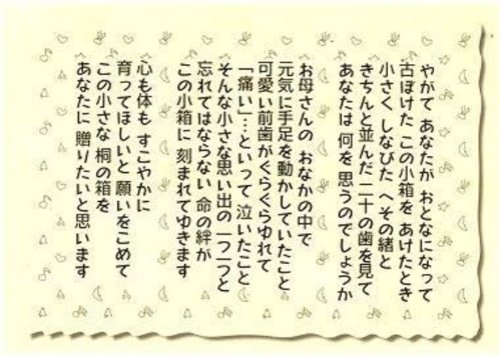 やがて あなたが おとなになって
古ぼけた この小箱を あけたとき
小さく しなびた へその緒と
きちんと並んだ 二十の歯を見て
あなたは 何を 思うのでしょうか
お母さんの おなかの中で
元気に手足を動かしていたこと
可愛い前歯がぐらぐらゆれて
「痛い」…といって 泣いたこと
そんな小さな思い出の 一つ一つと
忘れてはならない 命の絆が
この小箱に 刻まれてゆきます
心も体も すこやかに
育ってほしいと 願いをこめて
この小さな 桐の箱を
あなたに 贈りたいと思います